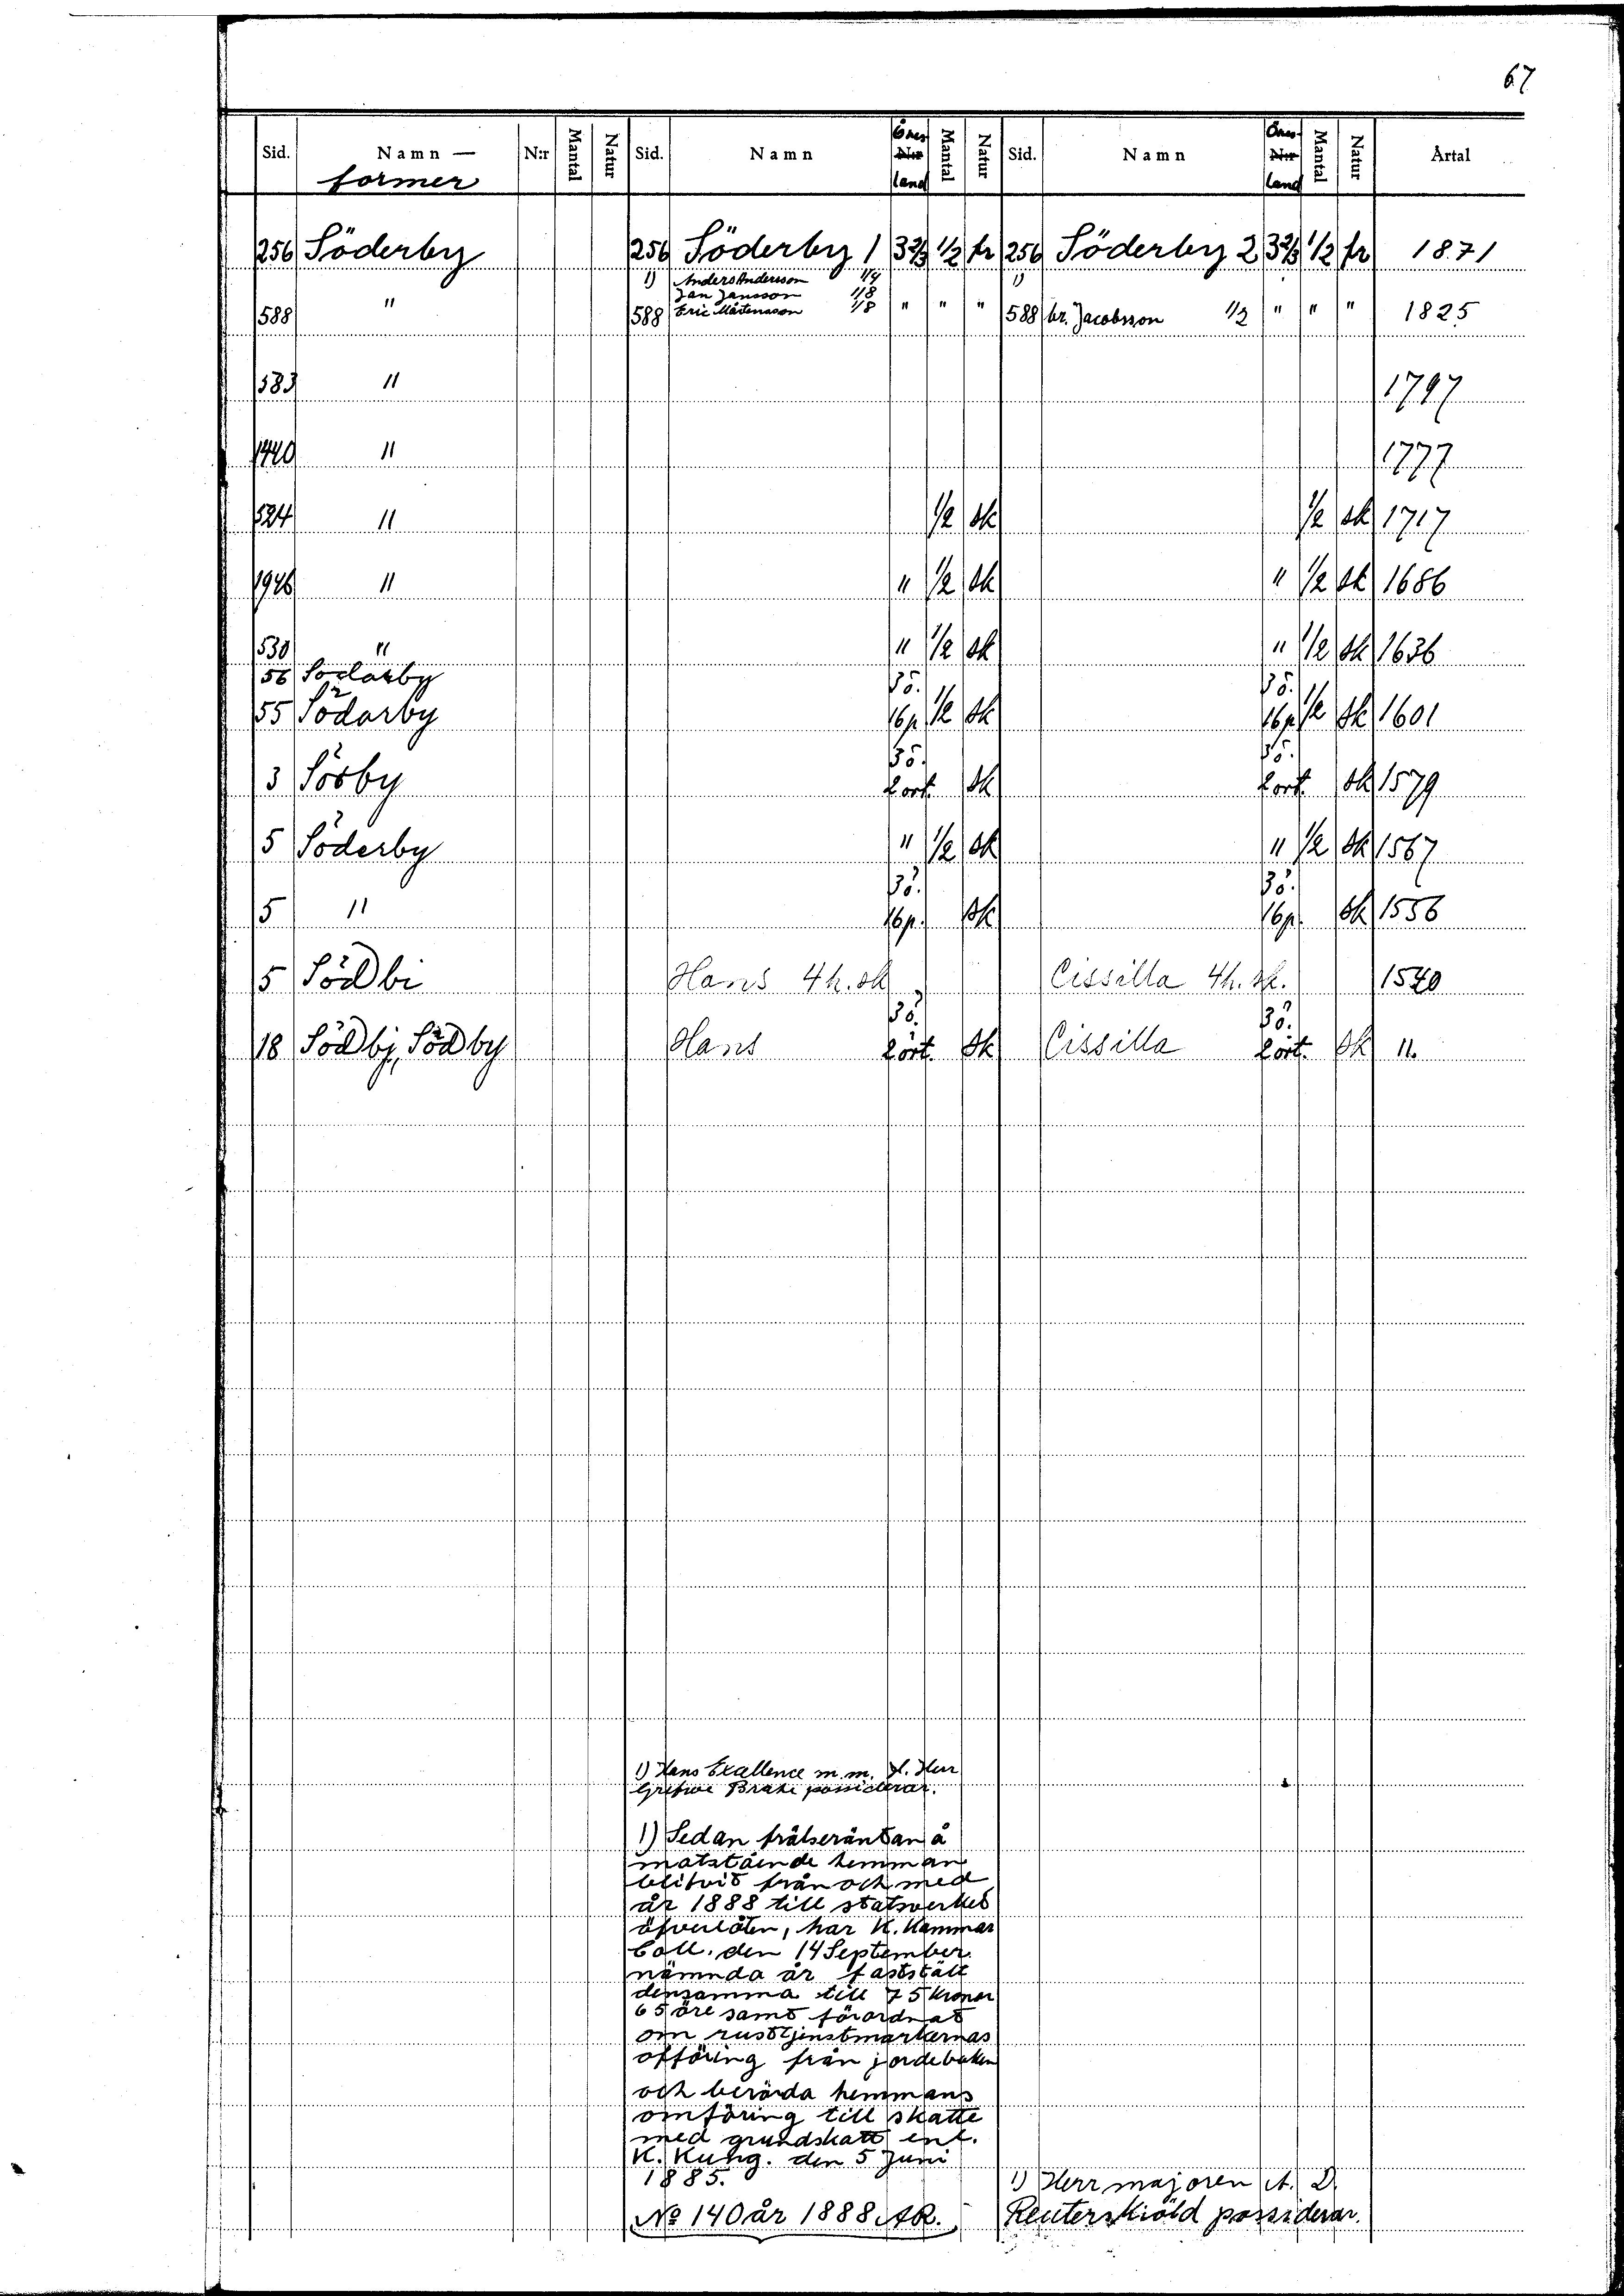 67
Sid. Namn — former N:r Mantal Natur Sid. Namn Öres N:r land Mantal Natur Sid. Namn Öres N:r land Mantal Natur Årtal
256 Söderby 256 Söderby 1 3 2/3 1/2 fr 256 Söderby 2 3 2/3 1/2 fr 1871
1) Anders Andersson 1/4 1)
Jan Jansson 1/8
588 " 588 Eric Mårtensson 1/8 " " " 588 br. Jacobsson 1/2 " " " 1825
583 " 1797
1440 " 1777
524 " 1/2 sk 1/2 sk 1717
1946 " " 1/2 sk " 1/2 sk 1686
530 " " 1/2 sk " 1/2 sk 1636
56 Sodarby 3ö. 3ö.
55 Södarby 16p. 1/2 sk 16p. 1/2 sk 1601
3ö. 3ö.
3 Sörby 2 ort. sk 2 ort. sk 1579
5 Söderby " 1/2 sk " 1/2 sk 1567
3ö. 3ö.
5 " 16p. sk 16p. sk 1556
5 Södbi Hans 4h. sk Cissilla 4h. sk. 1540
3ö. 3ö.
18 Södbj, Södby Hans 2 ört. sk Cissilla 2 ört. sk "
1) Hans Excellence m.m. H. Herr
Grefwe Brahe possiderar.
1) Sedan frälseräntan å
motstående hemman
blifvit från och med
år 1888 till statsverket
öfverlåten, har K. Kammar
Coll. den 14 September
nämnda år fastställt
densamma till 75 kronor
65 öre samt förordnat
om rusttjenstmarkernas
afföring från jordeboken
och berörda hemmans
omföring till skatte
med grundskatt enl.
K. Kung. den 5 Juni
1885.
No 140 år 1888 AR.
1) Herr majoren A. D.
Reuterskiöld possiderar.